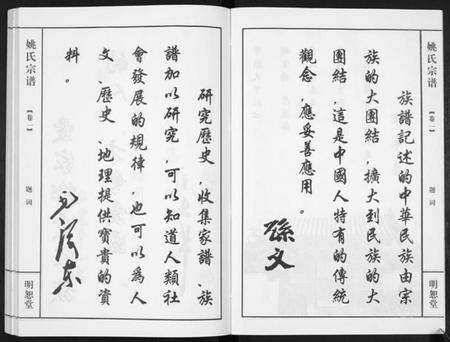 姚氏宗谱
【卷一】
题词
明恕堂
族譜記述的中華民族由宗
族的大团結，擴大到民族的大
团結，這是中國人特有的傳統
觀念，應妥善應用。
孫文
研究歷史，收集家譜、族
譜加以研究，可以知道人類社
會發展的規律，也可以為人
文、歷史、地理提供寶貴的資
料。
毛澤东
姚氏宗谱
【卷一】
题词
明恕堂